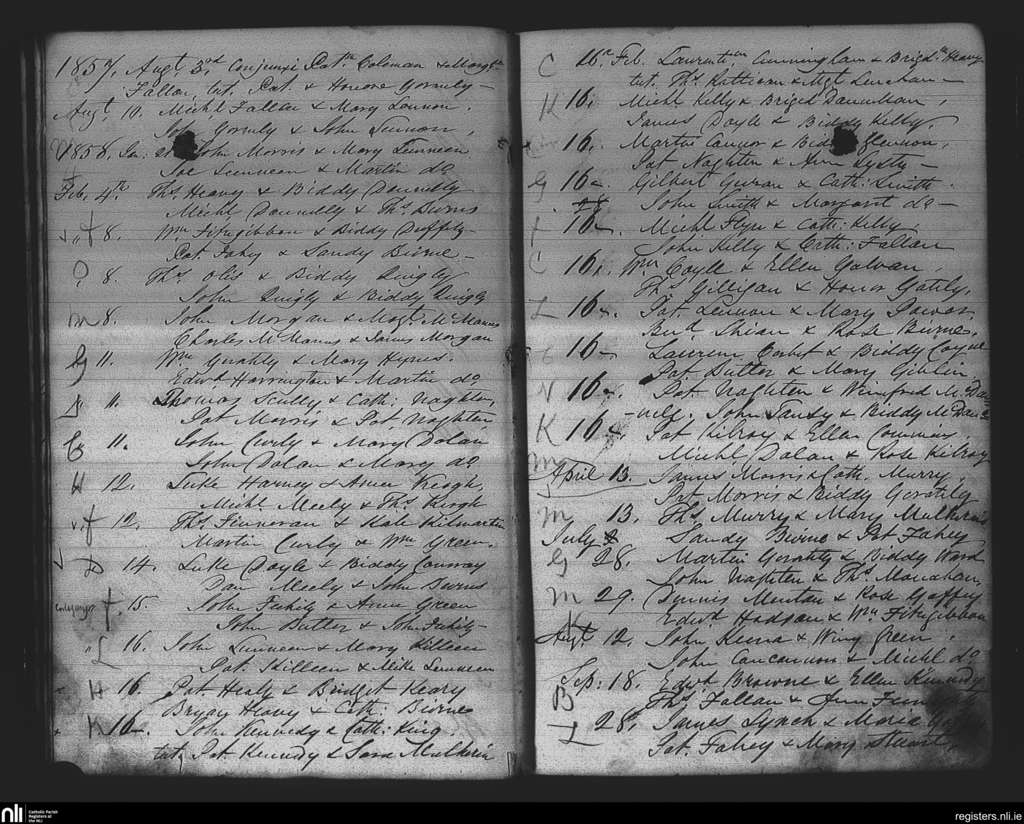 1857. Augt. 3rd Conjunxi Patk Coleman & Margt
Fallon, tet. Pat. & Honore Gormly—
Augt. 10. Michl Fallon & Mary Lennon.
John Gormly & John Lennon,
1858. Jan: John Morris & Mary Lenneen
Joe Lenneen & Martin do
Feb. 4th Ths Heavy & Biddy Donnelly
Michl Donnelly & Ths Burns
f 8. Wm Fitzgibbon & Biddy Duffily—
Pat Fahy & Sandy Birne—
O. 8. Ths Olis & Biddy Quigly
John Quigly & Biddy Quigly
M 8. John Morgan & Magt McManus
Charles McManus & James Morgan
G 11. Wm Gerahty & Mary Hynes.
Edwd Harrington & Martin do
11. Thomas Scully & Cath: Naghten,
Pat Morris & Pat Naghten
C 11. John Curly & Mary Dolan
John Dolan & Mary do
H 12. Luke Harney & Anne Keogh,
Michl Meely & Ths Keogh
f 12. Ths Finneran & Kate Kilmartin
Martin Curly & Wm Green.
D 14. Luke Doyle & Biddy Conroy
Dan Meely & John Burns
f. 15. John Fahily & Anne Green
John Butler & John Fahily
L 16. John Lenneen & Mary Killeen
Pat Killeen & Mike Lenneen
H 16. Pat Healy & Bridget Keary
Bryan Heavy & Cath: Birne
K 16. John Kennedy & Cath: King.
tet. Pat Kennedy & Sara Mulkerin
C 16. Feb. Laurence Cunningham & Brigd Heavy
tet. Ths & Mgt
K 16. Michl Kelly & Briged
James Doyle & Biddy Kelly.
16. Martin Connor & Glennon,
Pat Naghten & Ann Lysty—
G 16 Gilbert Guran & Cath: Smith.
John Smith & Margaret do—
f 16 Michl Flyn & Cath: Kelly
John Kelly & Cath: Fallan
C 16 Wm Coyle & Ellen Galvan,
Ths Gilligan & Honor Gately,
L 16 Pat. Lennon & Mary Power,
Shian & Rose Burne.
C 16 Lauren Corbet & Biddy Coyne
Pat Butler & Mary Giblin
N 16 Pat Naghten & Winifred McDan
-nell. John Sandy & Biddy McDan
K 16 Pat Kilroy & Ellen Commins,
Michl Dolan & Rose Kilroy
April 13. James Morris & Cath. Murry,
Pat Morris & Biddy Geraghty
M 13. Ths Murry & Mary Mulkerin
July Sandy Burne & Pat Fahey
G 28. Martin Geraghty & Biddy Ward
John Naghten & Ths Monahan,
M 29. Dennis Menton & Rose Gaffey
Edwd Hodson & Wm Fitzgibbon
Augt. 12. John Keena & Winy Green,
John Concannon & Michl do
Sep: 18. Edwd Browne & Ellen Kennedy
B Ths Fallan &
L 28, James Lynch & Maria
Pat. Fahey & Mary Stuart,
nli Catholic Parish
Registers at
the NLI
registers.nli.ie